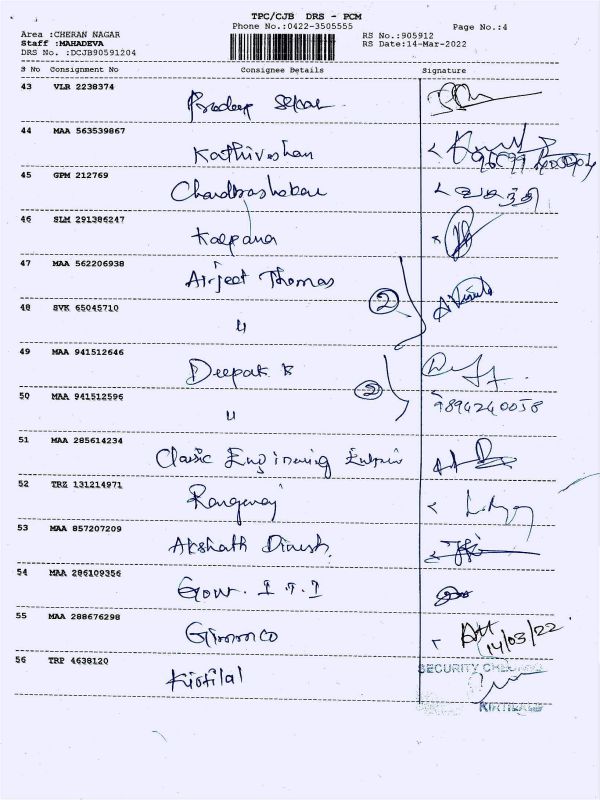 TPC/CJB DRS - PCM
Phone No.:0422-3505555 Page No.:4
Area :CHERAN NAGAR RS No.:905912
Staff :MAHADEVA RS Date:14-Mar-2022
DRS No. :DCJB90591204
S No Consignment No Consignee Details Signature
43 VLR 2238374
Pradeep Sekar
44 MAA 563539867
Kathiveshan
45 GPM 212769
Chandrashekar
46 SLM 291386247
Kalpana
47 MAA 562206938
Airjeet Thomas
2
48 SVK 65045710
"
49 MAA 941512646
Deepak B
2
50 MAA 941512596 9894240058
"
51 MAA 285614234
Classic Engineering
52 TRZ 131214971
Rangaraj
53 MAA 857207209
Akshath Dinesh
54 MAA 286109356
Govt. I.T.I
55 MAA 288676298
Gimmco 14/03/22
56 TRP 4638120 SECURITY
Kirtilal